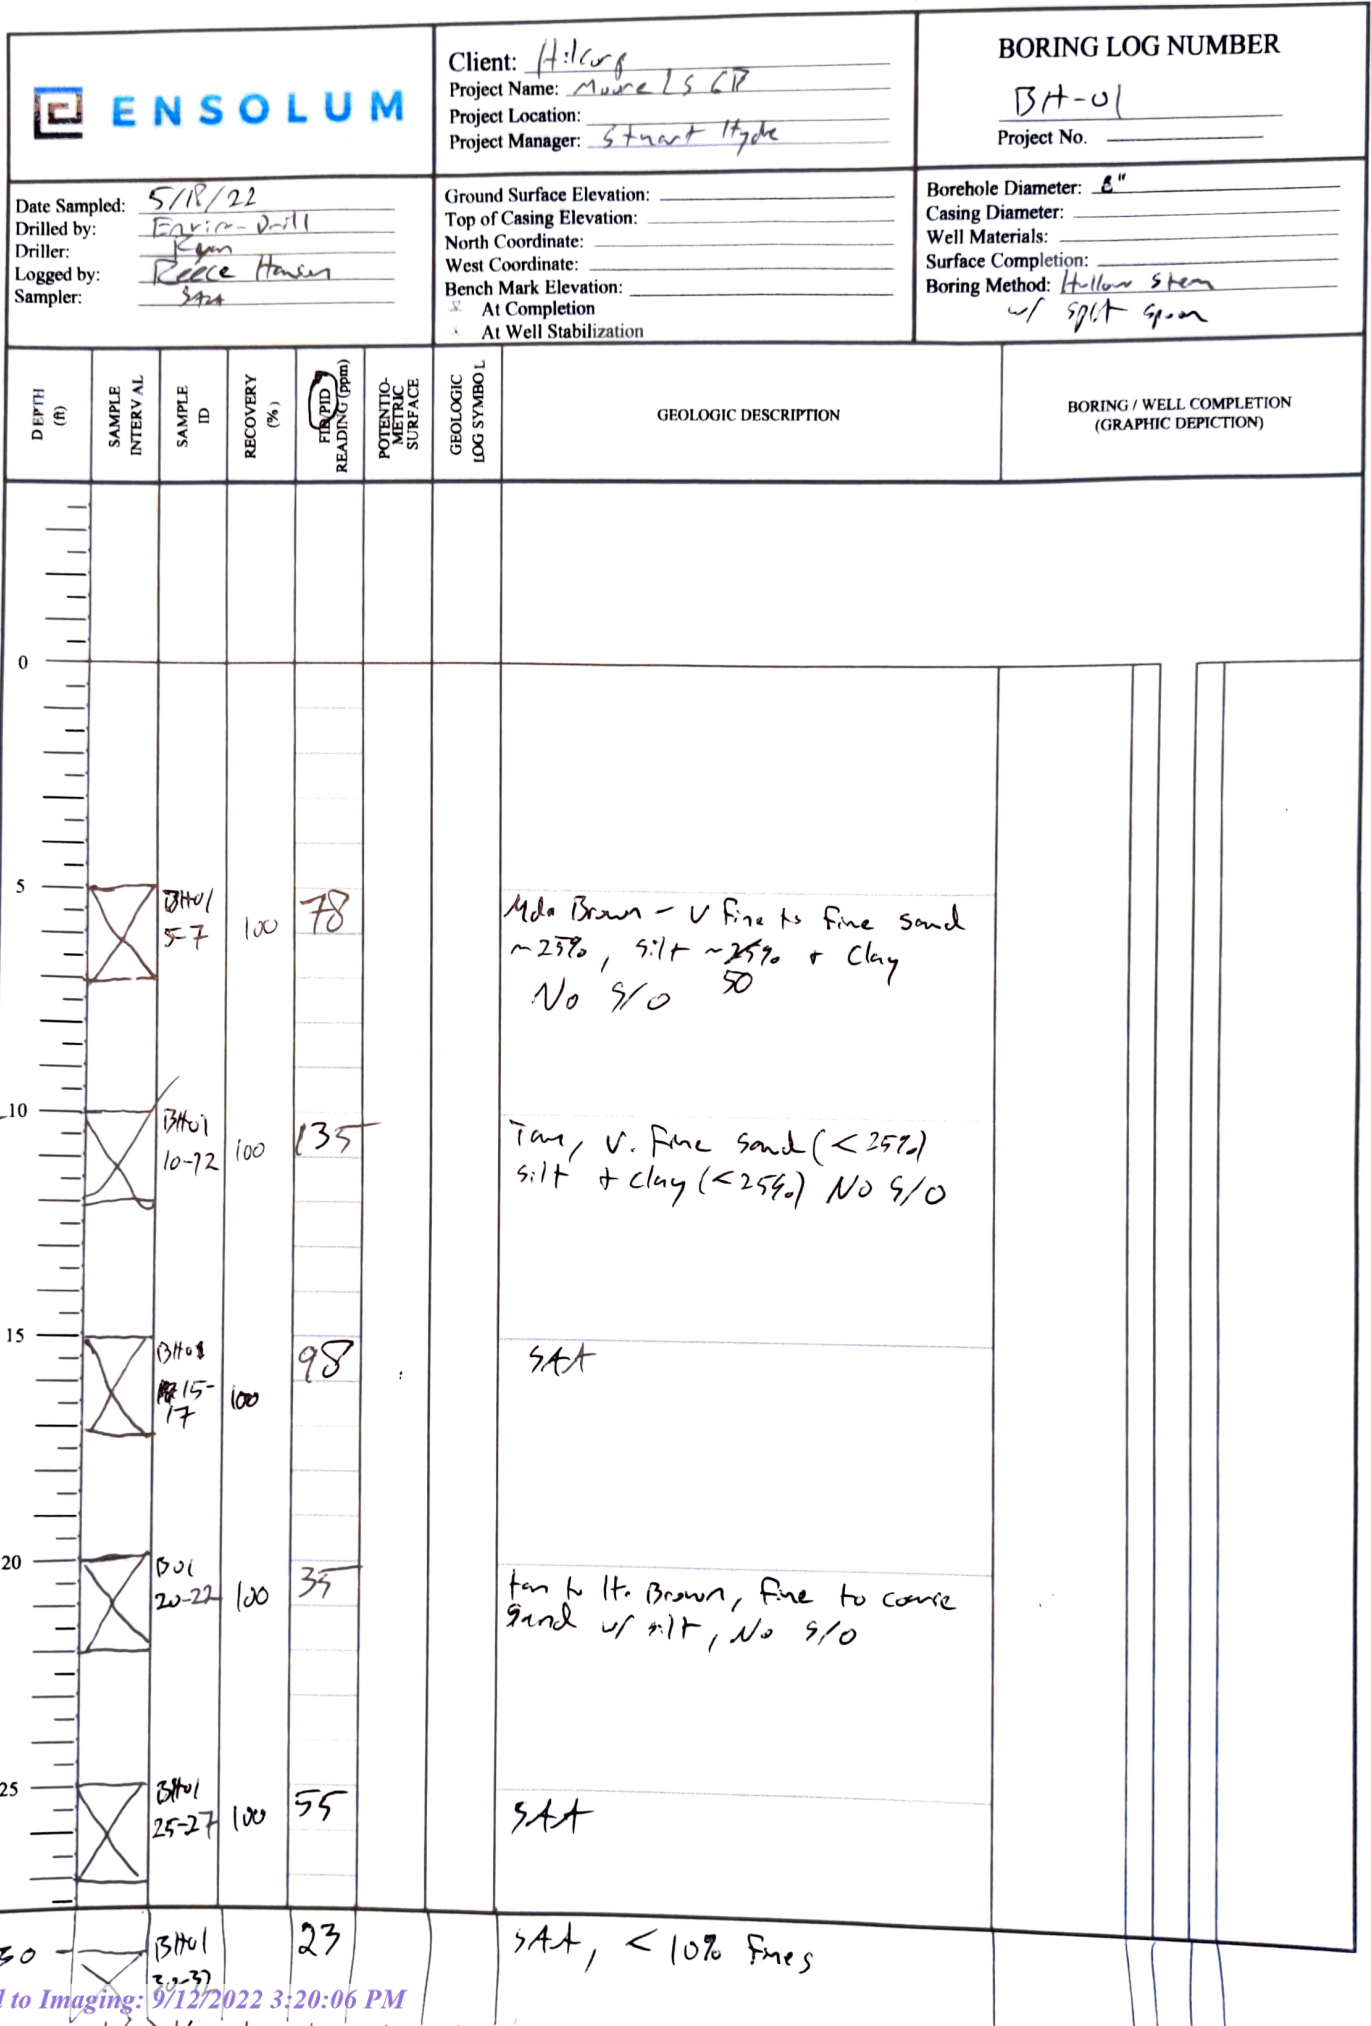 ENSOLUM
Client: Hilcorp
Project Name: Moore LS 6B
Project Location:
Project Manager: Stuart Hyde
BORING LOG NUMBER
BH-01
Project No.
Date Sampled: 5/18/22
Drilled by: Enviro-Drill
Driller:
Logged by: Reece Hanson
Sampler: SAA
Ground Surface Elevation:
Top of Casing Elevation:
North Coordinate:
West Coordinate:
Bench Mark Elevation:
At Completion
At Well Stabilization
Borehole Diameter: 8"
Casing Diameter:
Well Materials:
Surface Completion:
Boring Method: Hollow Stem
w/ split spoon
DEPTH (ft)
SAMPLE INTERVAL
SAMPLE ID
RECOVERY (%)
FID/PID READING (ppm)
POTENTIO-METRIC SURFACE
GEOLOGIC LOG SYMBOL
GEOLOGIC DESCRIPTION
BORING / WELL COMPLETION
(GRAPHIC DEPICTION)
0
5
BH01
5-7
100
78
Brown - V fine to fine sand
~25%, silt ~25% + Clay
50
No S/O
10
BH01
10-12
100
135
Tan, V. Fine sand (<25%)
silt + clay (<25%) No S/O
15
BH01
15-
17
100
98
SAA
20
B01
20-22
100
35
tan to lt. Brown, fine to coarse
Sand w/ silt, No S/O
25
BH01
25-27
100
55
SAA
30
BH01
30-32
23
SAA, < 10% fines
to Imaging: 9/12/2022 3:20:06 PM